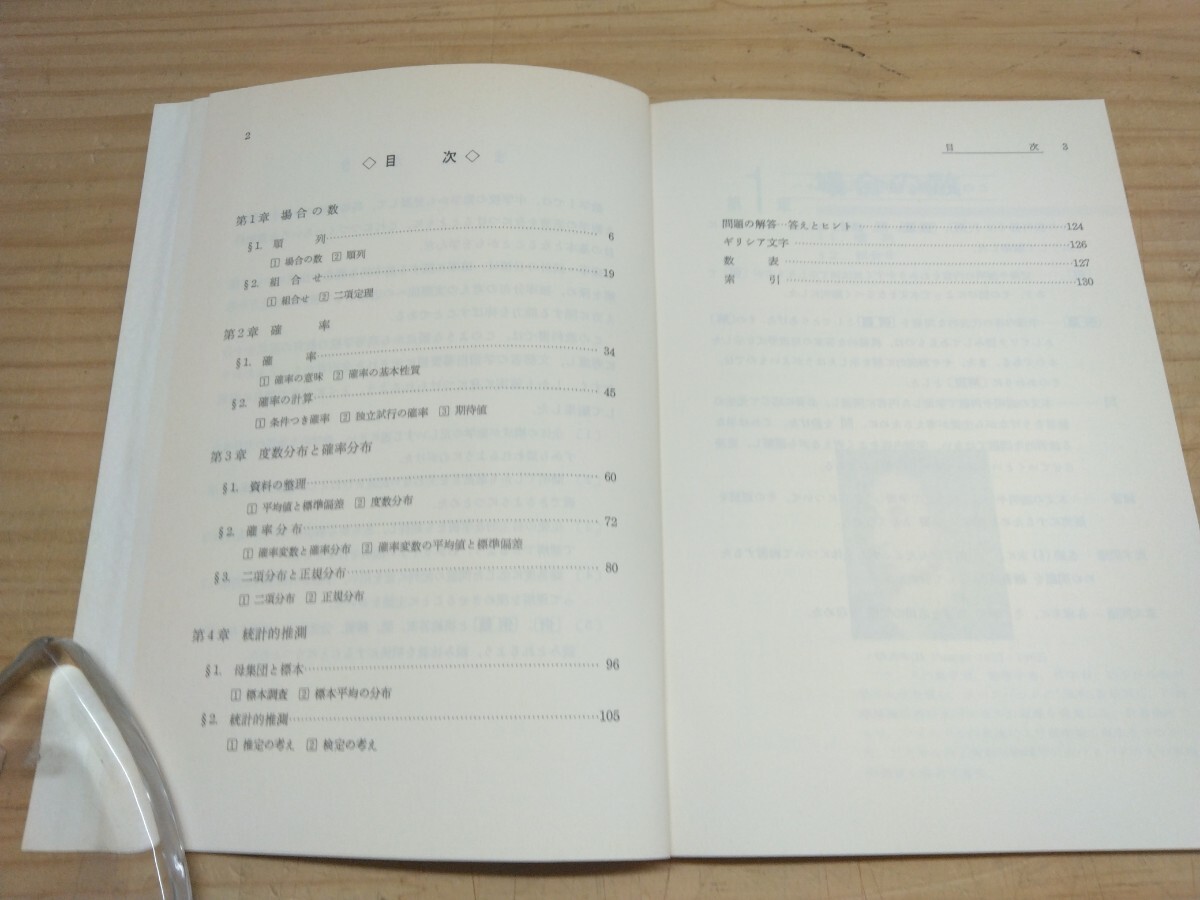 2
◇目　次◇
第1章 場合の数
§1. 順　列……6
1 場合の数 2 順列
§2. 組合せ……19
1 組合せ 2 二項定理
第2章 確　率
§1. 確　率……34
1 確率の意味 2 確率の基本性質
§2. 確率の計算……45
1 条件つき確率 2 独立試行の確率 3 期待値
第3章 度数分布と確率分布
§1. 資料の整理……60
1 平均値と標準偏差 2 度数分布
§2. 確率分布……72
1 確率変数と確率分布 2 確率変数の平均値と標準偏差
§3. 二項分布と正規分布……80
1 二項分布 2 正規分布
第4章 統計的推測
§1. 母集団と標本……96
1 標本調査 2 標本平均の分布
§2. 統計的推測……105
1 推定の考え 2 検定の考え
目　次 3
問題の解答―答えとヒント……124
ギリシア文字……126
数　表……127
索　引……130